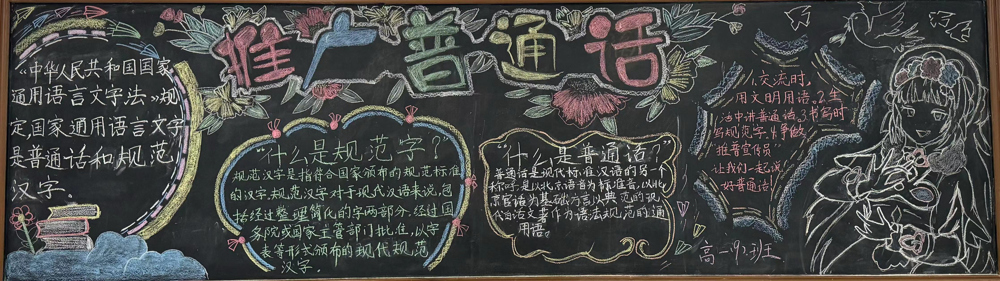 推广普通话
“中华人民共和国国家
通用语言文字法》规
定国家通用语言文字
是普通话和规范
汉字.
“什么是规范字?”
规范汉字是指符合国家颁布的规范标准
的汉字,规范汉字对于现代汉语来说,包
括经过整理简化的字两部分.经过国
务院或国家主管部门批准,以字
表等形式颁布的现代规范
汉字.
“什么是普通话?”
普通话是现代标准汉语的另一个
称呼,是以北京语音为标准音,以北
京官话为基础方言以典范的现
代白话文著作为语法规范的通
用语。
1.交流时,
用文明用语.2.生
活中讲普通话.3.书写时
写规范字.4.争做
“推普宣传员”
让我们一起说
好普通话!
高一(9)班